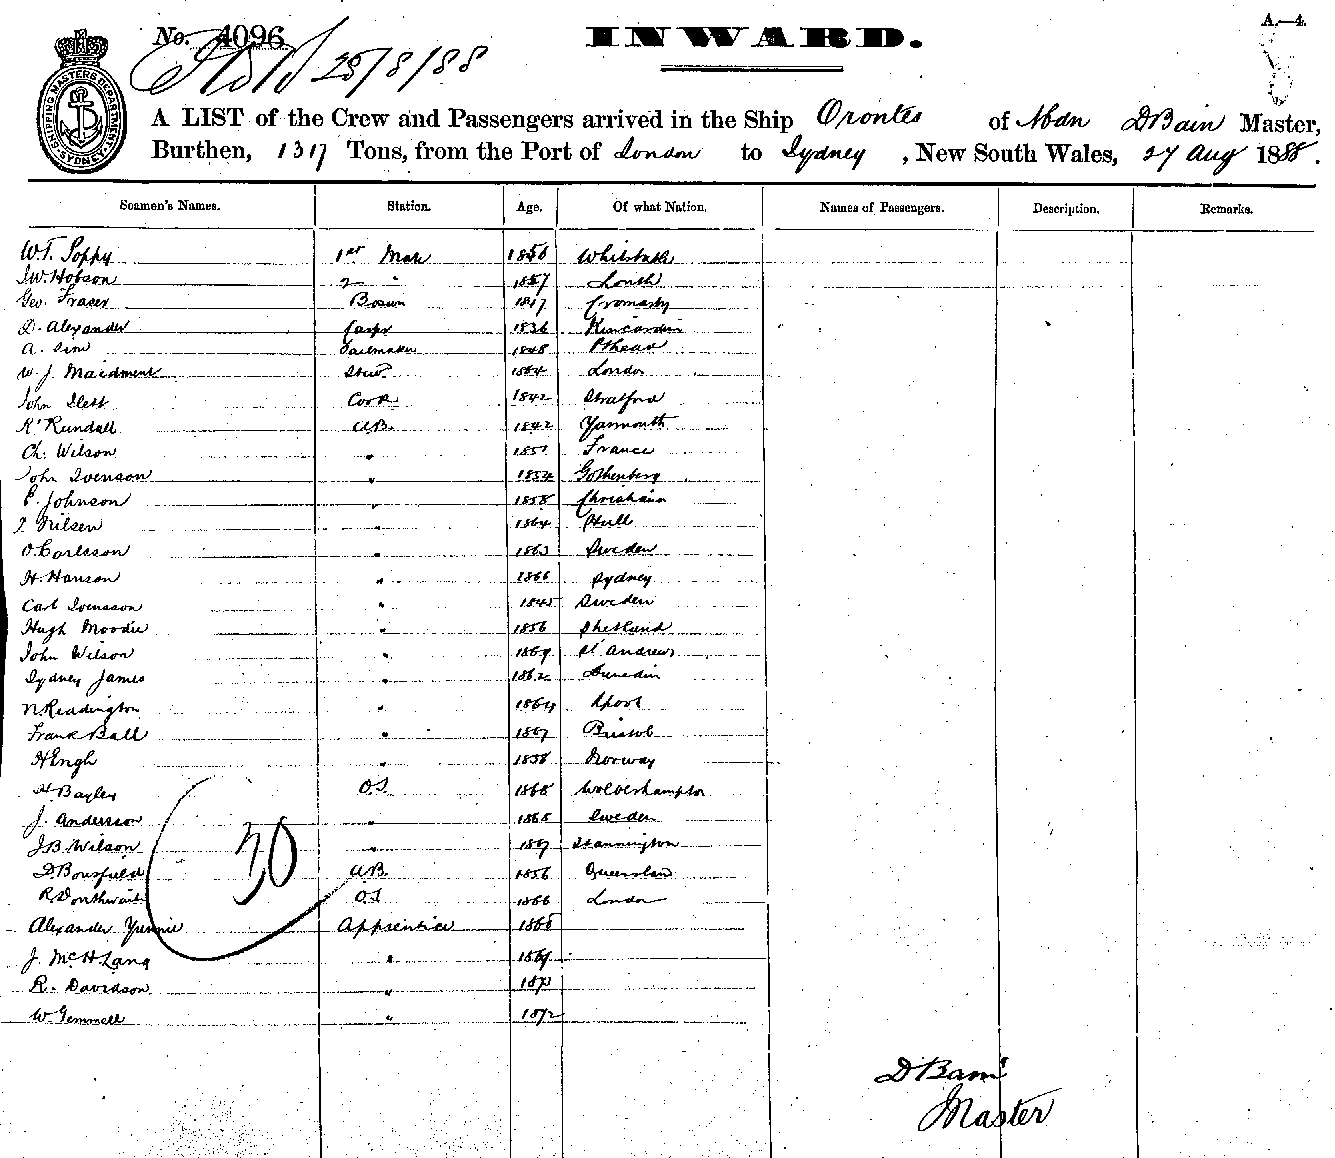 A.—4.
No. 4096
INWARD.
25/8/88
SHIPPING MASTERS DEPARTMENT SYDNEY
A LIST of the Crew and Passengers arrived in the Ship Orontes of Abdn D Bain Master,
Burthen, 1317 Tons, from the Port of London to Sydney, New South Wales, 27 Aug 1888.
Seamen's Names. Station. Age. Of what Nation. Names of Passengers. Description. Remarks.
W.T. Poppy 1st Mate 1856 Whitstable
J.W. Hobson 2 " 1857 Louth
Geo. Fraser Bosun 1847 Cromarty
D. Alexander Carpr 1836 Kincardin
A. Sim Sailmaker 1848 Pthead
W. J. Maidment Stew. 1864 London
John Ilett Cook 1842 Stratford
R. Rundall AB. 1842 Yarmouth
Ch. Wilson " France
John Svenson " 1854 Gothenberg
P. Johnson " 1858 Christiana
Nilsen " 1864 Hull
O. Carlsson " 1863 Sweden
H. Hanson " 1866 Sydney
Carl Svensson " 1845 Sweden
Hugh Moodie " 1856 Shetland
John Wilson " 1869 St Andrews
Sydney James " 1862 Dunedin
N. Readington " 1864 Lpool
Frank Ball " 1867 Bristol
H Engh " 1858 Norway
H. Bayley O.S. 1868 Wolverhampton
J. Anderson " 1868 Sweden
J.B. Wilson " 1867 Stannington
D Bousfield AB. 1856 Queensland
R Donthwaite O.S. 1866 London
30
Alexander Apprentice 1868
J. McH Lang " 1869
R. Davidson " 1871
W. Gemmell " 1872
D Bain
Master